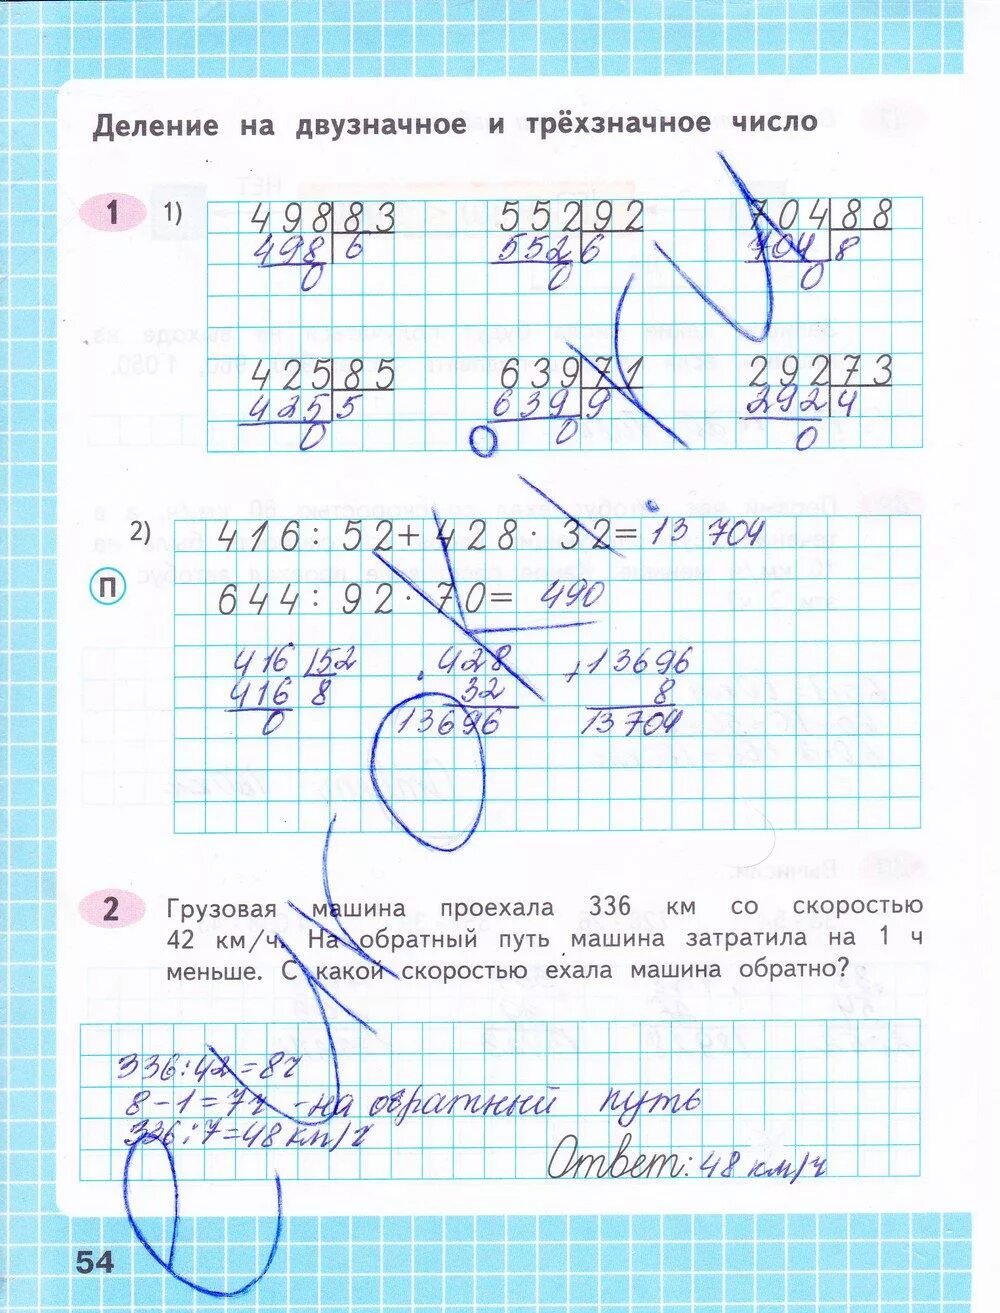 Деление на двузначное и трёхзначное число
1 1) 498 83 552 92 704 88
498 6 552 6 704 8
0 0 0
425 85 639 71 292 73
425 5 639 9 292 4
0 0 0
2) 416 : 52 + 428 · 32 = 13 704
П 644 : 92 · 70 = 490
416 52 · 428 + 13696
416 8 32 8
0 13696 13704
2 Грузовая машина проехала 336 км со скоростью
42 км/ч. На обратный путь машина затратила на 1 ч
меньше. С какой скоростью ехала машина обратно?
336:42=8ч
8-1=7ч -на обратный путь
336:7=48км/ч
Ответ: 48 км/ч
54